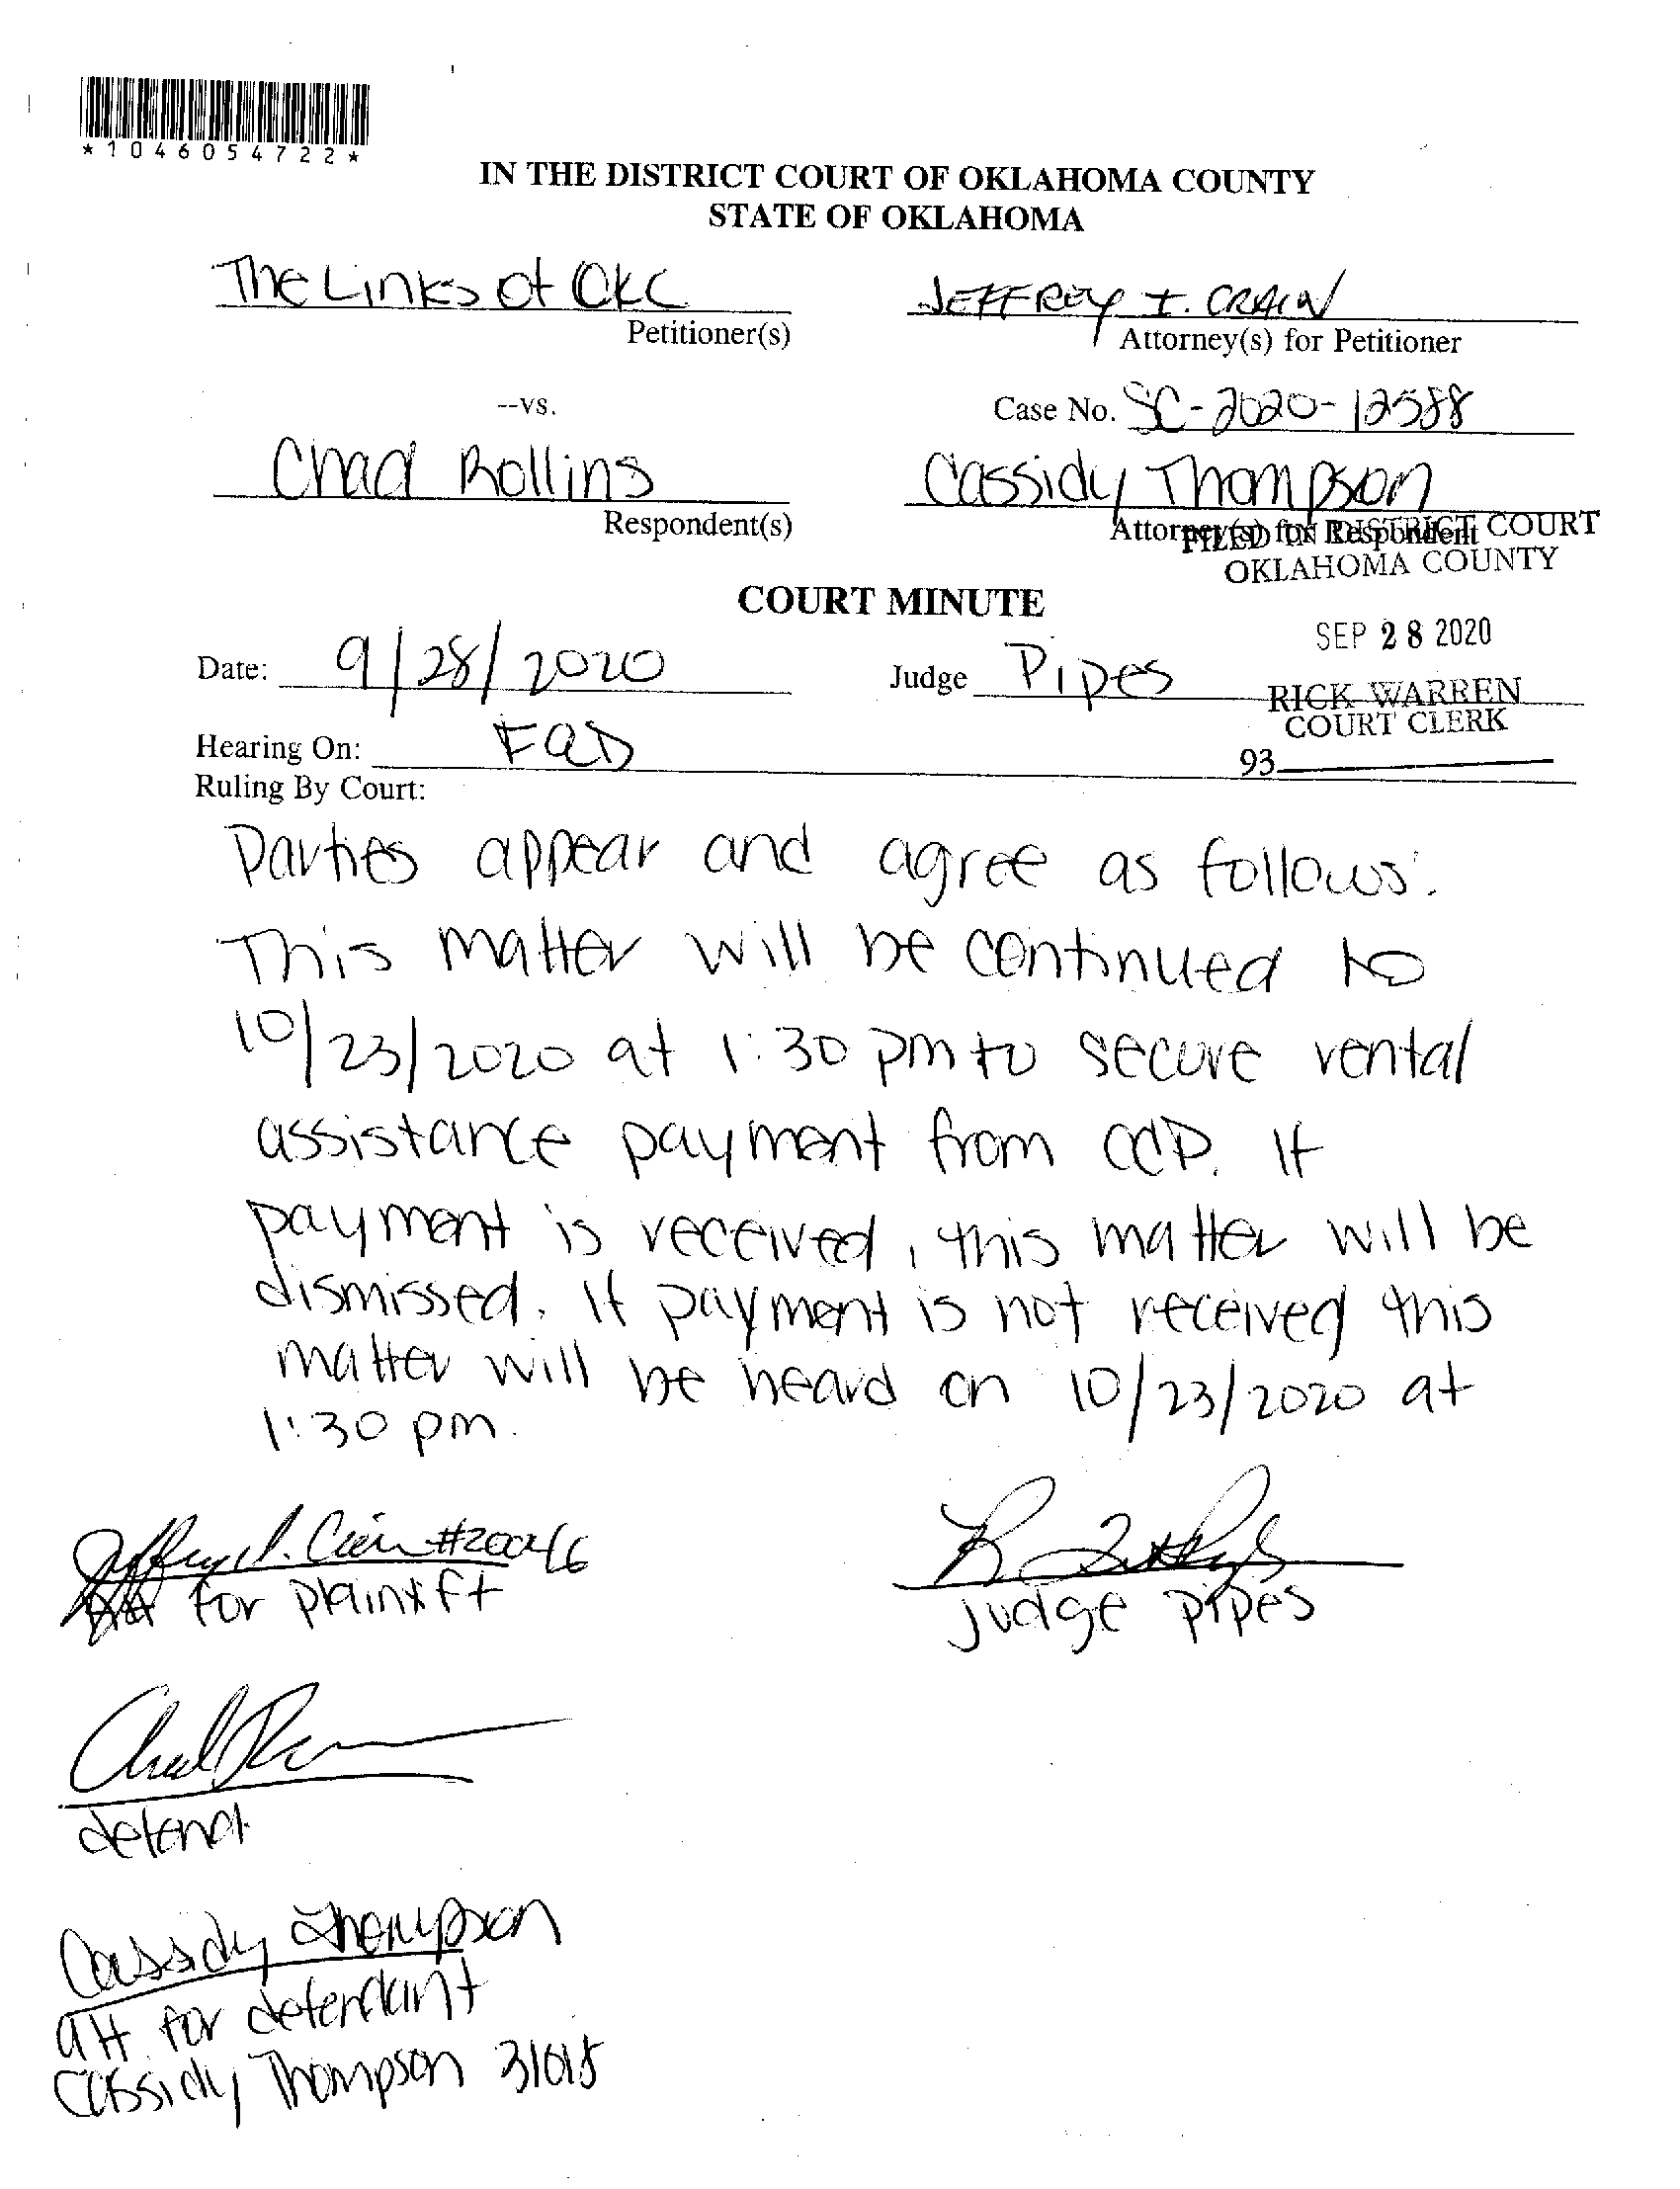 *1046054722*
IN THE DISTRICT COURT OF OKLAHOMA COUNTY
STATE OF OKLAHOMA
The Links of OKC
Petitioner(s)
JEFFREY I. CRAIN
Attorney(s) for Petitioner
--vs.
Case No. SC-2020-12588
Chad Rollins
Respondent(s)
Cassidy Thompson
Attorney(s) for Respondent
FILED IN DISTRICT COURT
OKLAHOMA COUNTY
COURT MINUTE
SEP 28 2020
Date: 9/28/2020
Judge Pipes
RICK WARREN
COURT CLERK
Hearing On: F&D
93
Ruling By Court:
Parties appear and agree as follows:
This matter will be continued to
10/23/2020 at 1:30 pm to secure rental
assistance payment from CCP. If
payment is received, this matter will be
dismissed. If payment is not received this
matter will be heard on 10/23/2020 at
1:30 pm.
Jeffrey I. Crain
for plaintiff
Judge Pipes
Chad
defendt
Cassidy Thompson
att. for defendant
Cassidy Thompson 31015